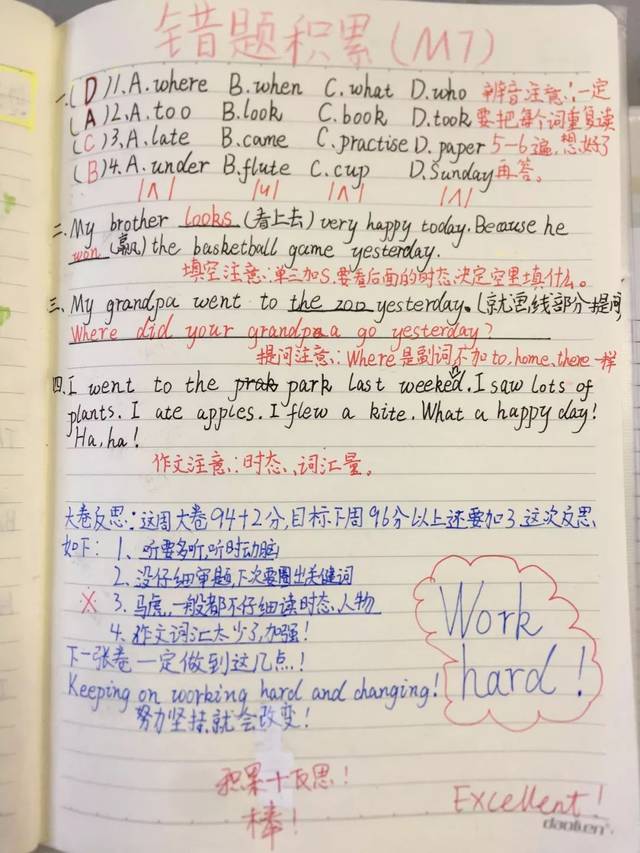 错题积累(M7)
一.(D)1.A.where B.when C.what D.who 辨音注意:一定
(A)2.A.too B.look C.book D.took 要把每个词重复读
(C)3.A.late B.came C.practise D.paper 5-6遍,想好了
(B)4.A.under B.flute C.cup D.Sunday 再答。
/ʌ/ /u/ /ʌ/ /ʌ/
二.My brother looks (看上去) very happy today. Because he
won (赢) the basketball game yesterday.
填空注意:单三加S.要看后面的时态,决定空里填什么。
三、My grandpa went to the zoo yesterday.(就画线部分提问)
Where did your grandpa go yesterday?
提问注意:Where是副词不加to,home,there一样
四.I went to the park last weekend. I saw lots of
plants. I ate apples. I flew a kite. What a happy day!
Ha,ha!
作文注意:时态、词汇量。
大卷反思:这周大卷94+2分,目标下周96分以上还要加3,这次反思
如下: 1、听要多听,听时动脑
2、没仔细审题下次要圈出关键词
× 3、马虎,一般都不仔细读时态、人物
4、作文词汇太少了,加强!
下一张卷一定做到这几点!
Keeping on working hard and changing!
努力坚持就会改变!
Work
hard!
积累+反思!
棒!
Excellent!